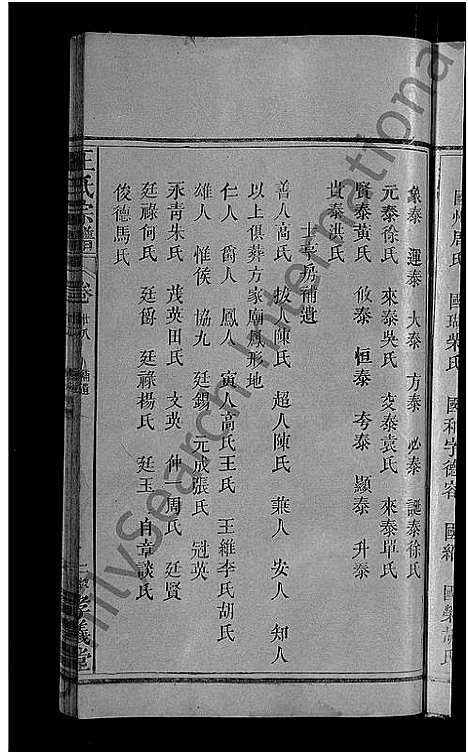 國瑞榮氏 國和字德容 國繡
象泰 運泰 大泰 方泰 必泰 誕泰徐氏
元泰徐氏 來泰吳氏 交泰袁氏 來泰單氏
賢泰黃氏 攸泰 恒泰 夸泰 顯泰 升泰
貞泰洪氏
士享房補遺
善人高氏 拔人陳氏 超人陳氏 兼人 安人 知人
以上俱葬方家廟鳳形地
仁人 爵人 鳳人 寅人高氏王氏 王維李氏胡氏
雄人 惟侯 協九 廷錫 元成張氏 冠英
永青朱氏 茂英田氏 文英 仲 周氏 廷賢
廷祿何氏 廷爵 廷祿楊氏 廷玉 自章談氏
俊德馬氏
王氏宗譜 卷廿八 補遺 孝義堂
FamilySearch International